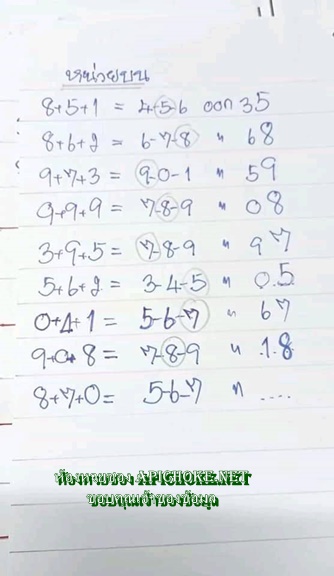 หน่วยบน
8+5+1 = 4-5-6 ออก 35
8+6+2 = 6-7-8 " 68
9+7+3 = 9-0-1 " 59
9+9+9 = 7-8-9 " 08
3+9+5 = 7-8-9 " 97
5+6+2 = 3-4-5 " 0.5
0+4+1 = 5-6-7 " 67
9+0+8 = 7-8-9 " .1.8
8+7+0= 5-6-7 " ....
ห้องหวยซอง APICHOKE.NET
ขอบคุณเจ้าของข้อมูล